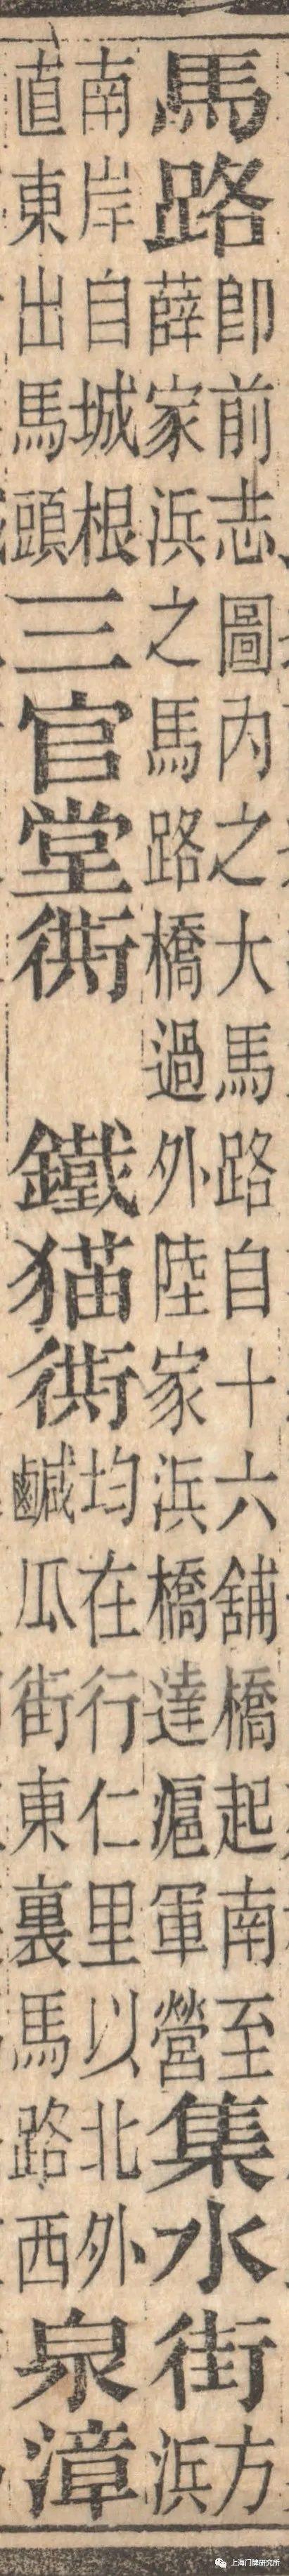 馬路
卽前志圖內之大馬路自十六舖橋起南至
薛家浜之馬路橋過外陸家浜橋達滬軍營
集水街
方
浜
南岸自城根
直東出馬頭
三官堂衖
鐵猫衖
均在行仁里以北外
鹹瓜街東裏馬路西
泉漳
上海门牌研究所